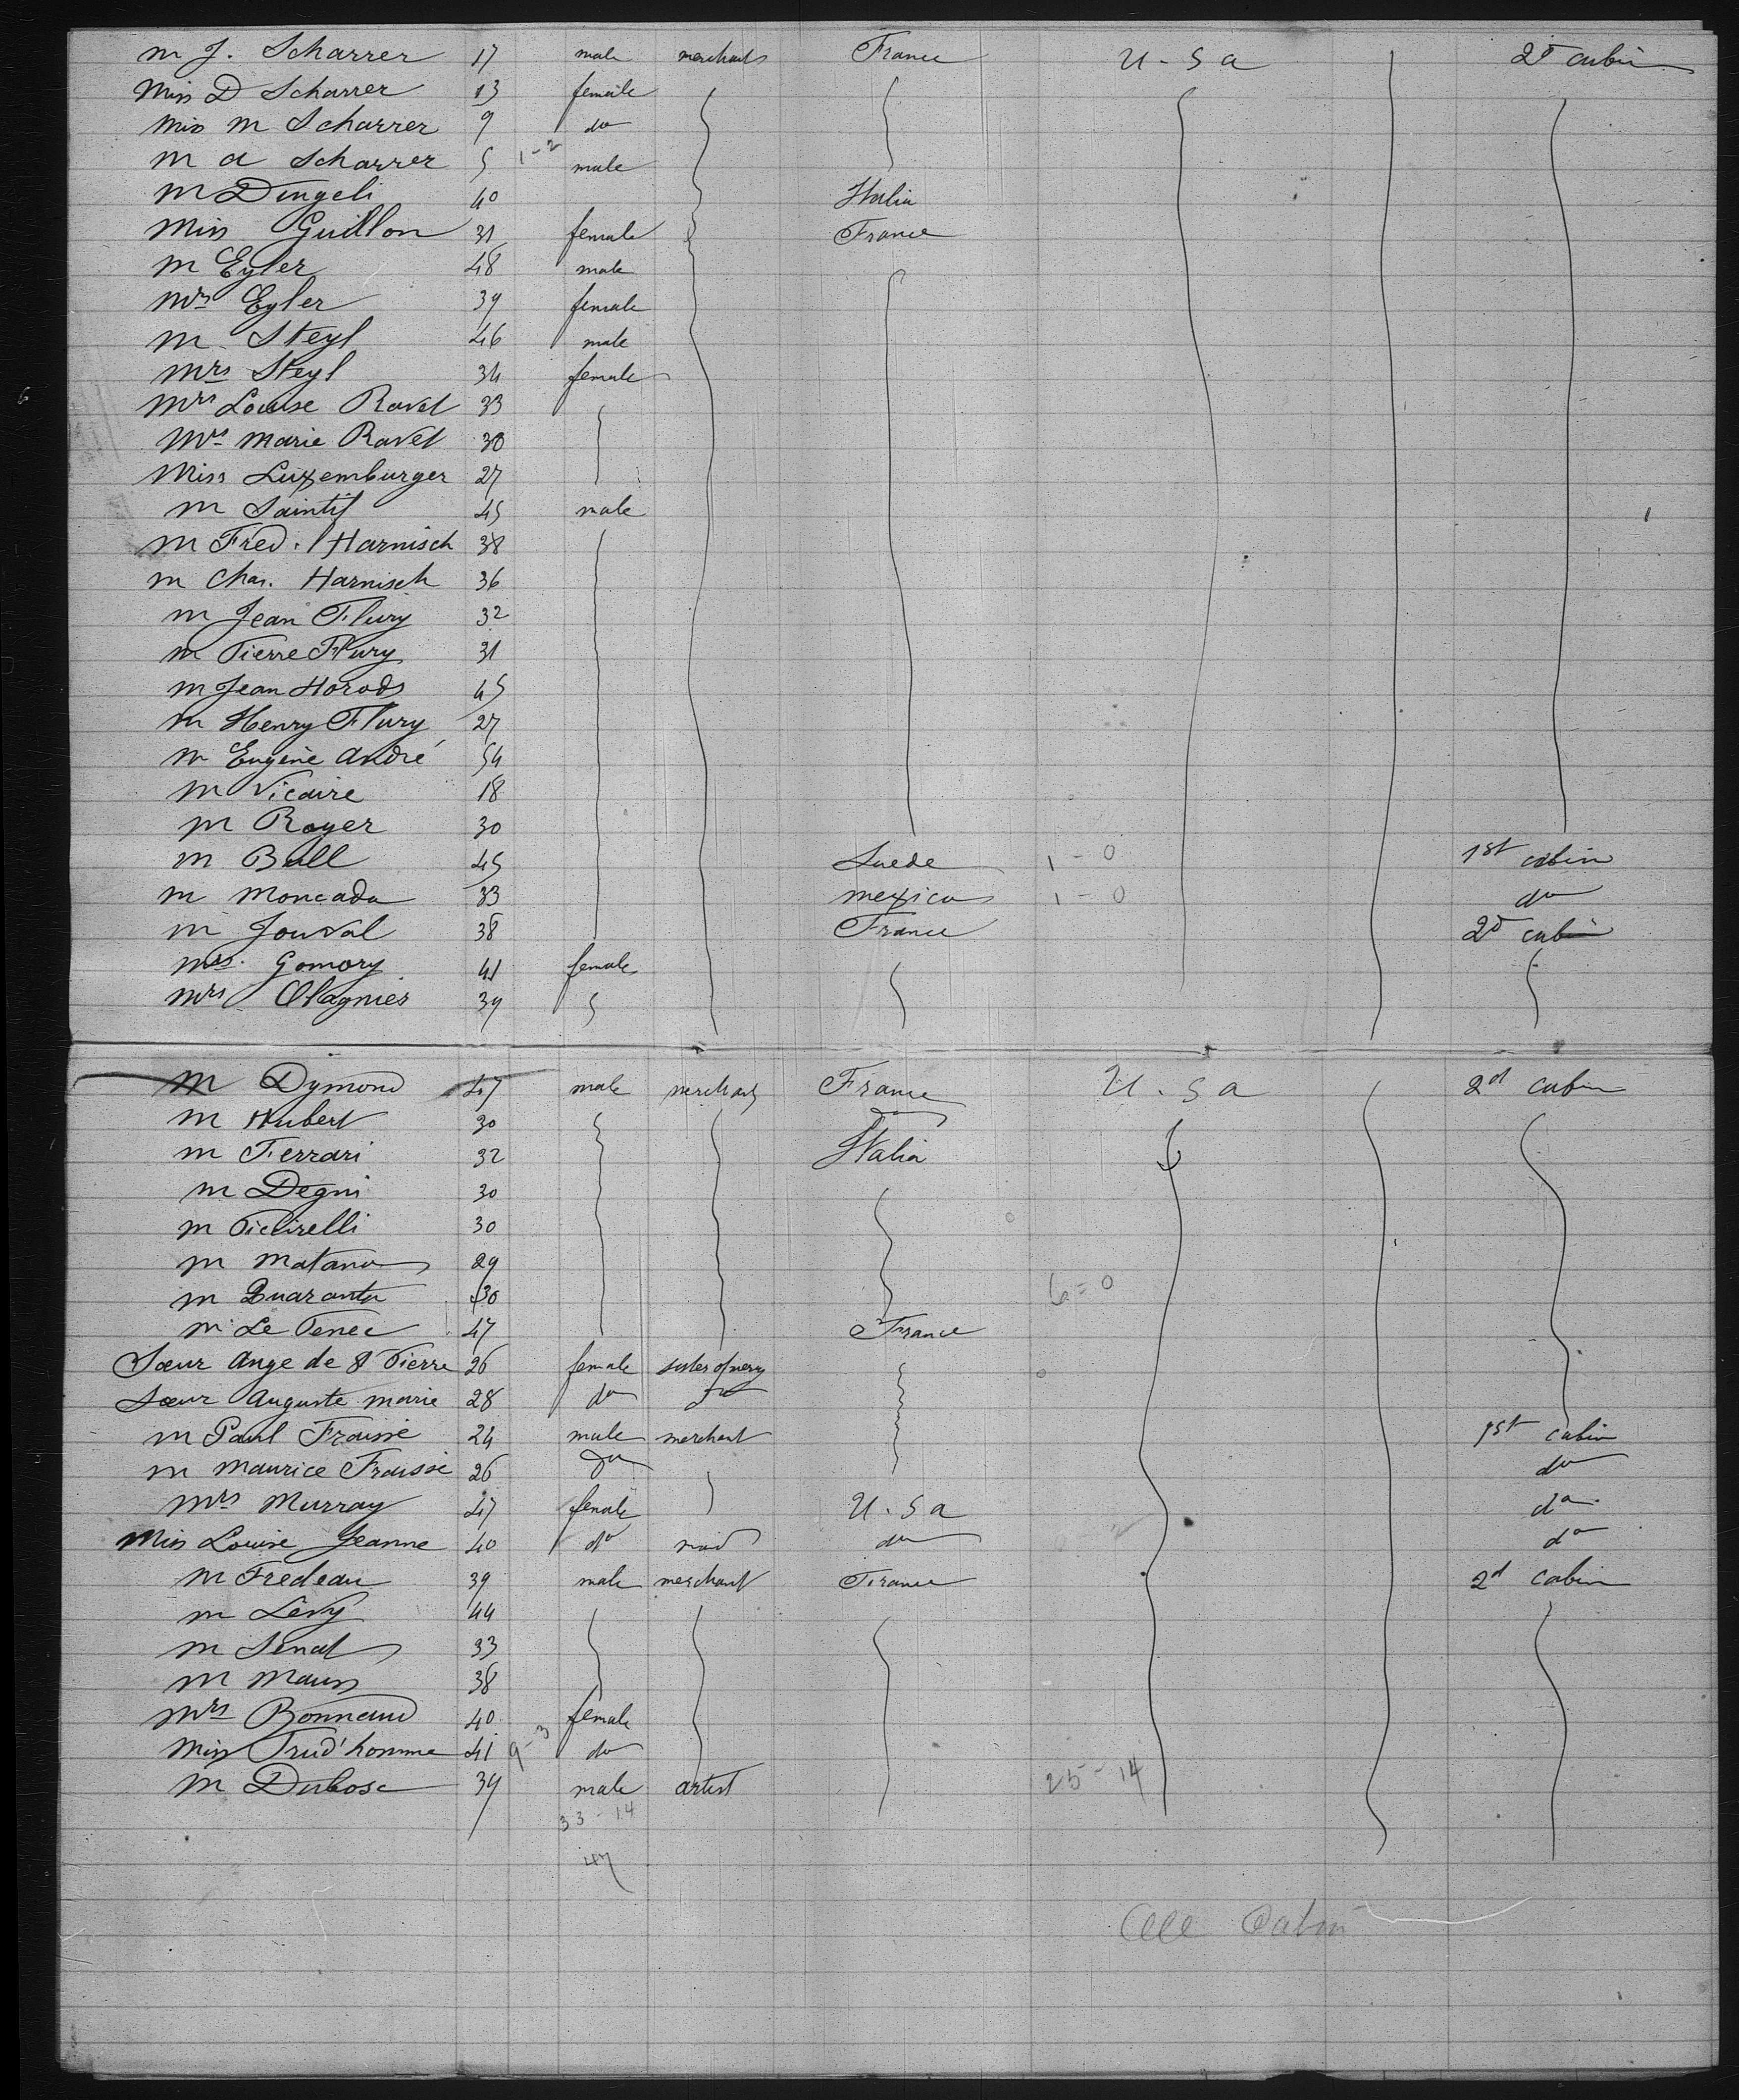 M J. Scharrer 17 male merchant France U-S a 2d cabin
Miss D Scharrer 13 female
Miss M Scharrer 9 do
M a Scharrer 5 1-2 male
M Dingeli 40 Italia
Miss Guillon 31 female France
M Eyler 48 male
Mrs Eyler 39 female
M Steyl 46 male
Mrs Steyl 34 female
Mrs Louise Ravet 33
Mrs Marie Ravet 30
Miss Luxemburger 27
M Saintif 45 male
M Fred. Harnisch 38
M Chas. Harnisch 36
M Jean Flury 32
M Pierre Flury 31
M Jean Horods 45
M Henry Flury 27
M Eugène André 54
M Vicaire 18
M Royer 30
M Bull 45 Suede 1-0 1st cabin
M Moncada 33 Mexico 1-0 do
M Jouval 38 France 2d cabin
Mrs. Gomory 41 female
Mrs Olagnier 39
M Dymond 47 male merchant France U.S a 2d cabin
M Hubert 30 do
M Ferrari 32 Italia
M Degni 30
M Piclirelli 30
M Matano 29
M Quaranta 30 6-0
M Le Tenec 47 France
Sœur Ange de St Pierre 26 female sister of mercy
Sœur Auguste Marie 28 do do
M Paul Fraissé 24 male merchant 1st cabin
M Maurice Fraissé 26 do do
Mrs Murray 47 female U.S a do
Miss Louise Jeanne 40 do maid do do
M Fredeau 39 male merchant France 2d cabin
M Lévy 44
M Senat 33
M Mauss 38
Mrs Bonnaud 40 female
Miss Prud'homme 41 9-3 do
M Dubosc 39 male artist 25-14
33-14
47
All Cabin